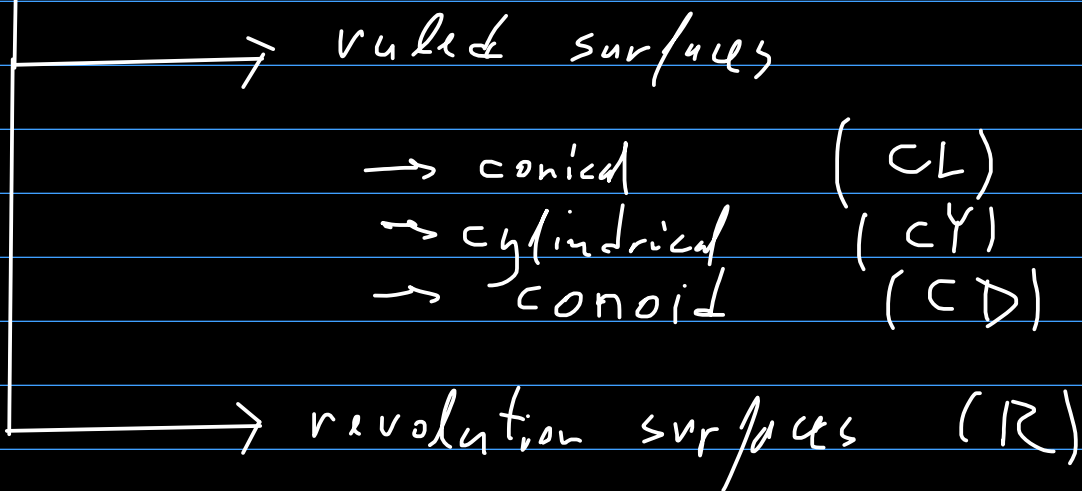 → ruled surfaces
→ conical (CL)
→ cylindrical (CY)
→ conoid (CD)
→ revolution surfaces (R)